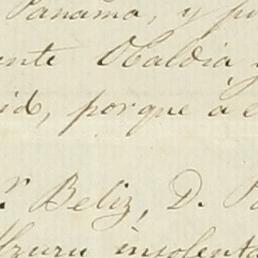 Panamá, y p
ente Obaldia
id, porque á e
r Beliz, D. P
Azuru insolenta